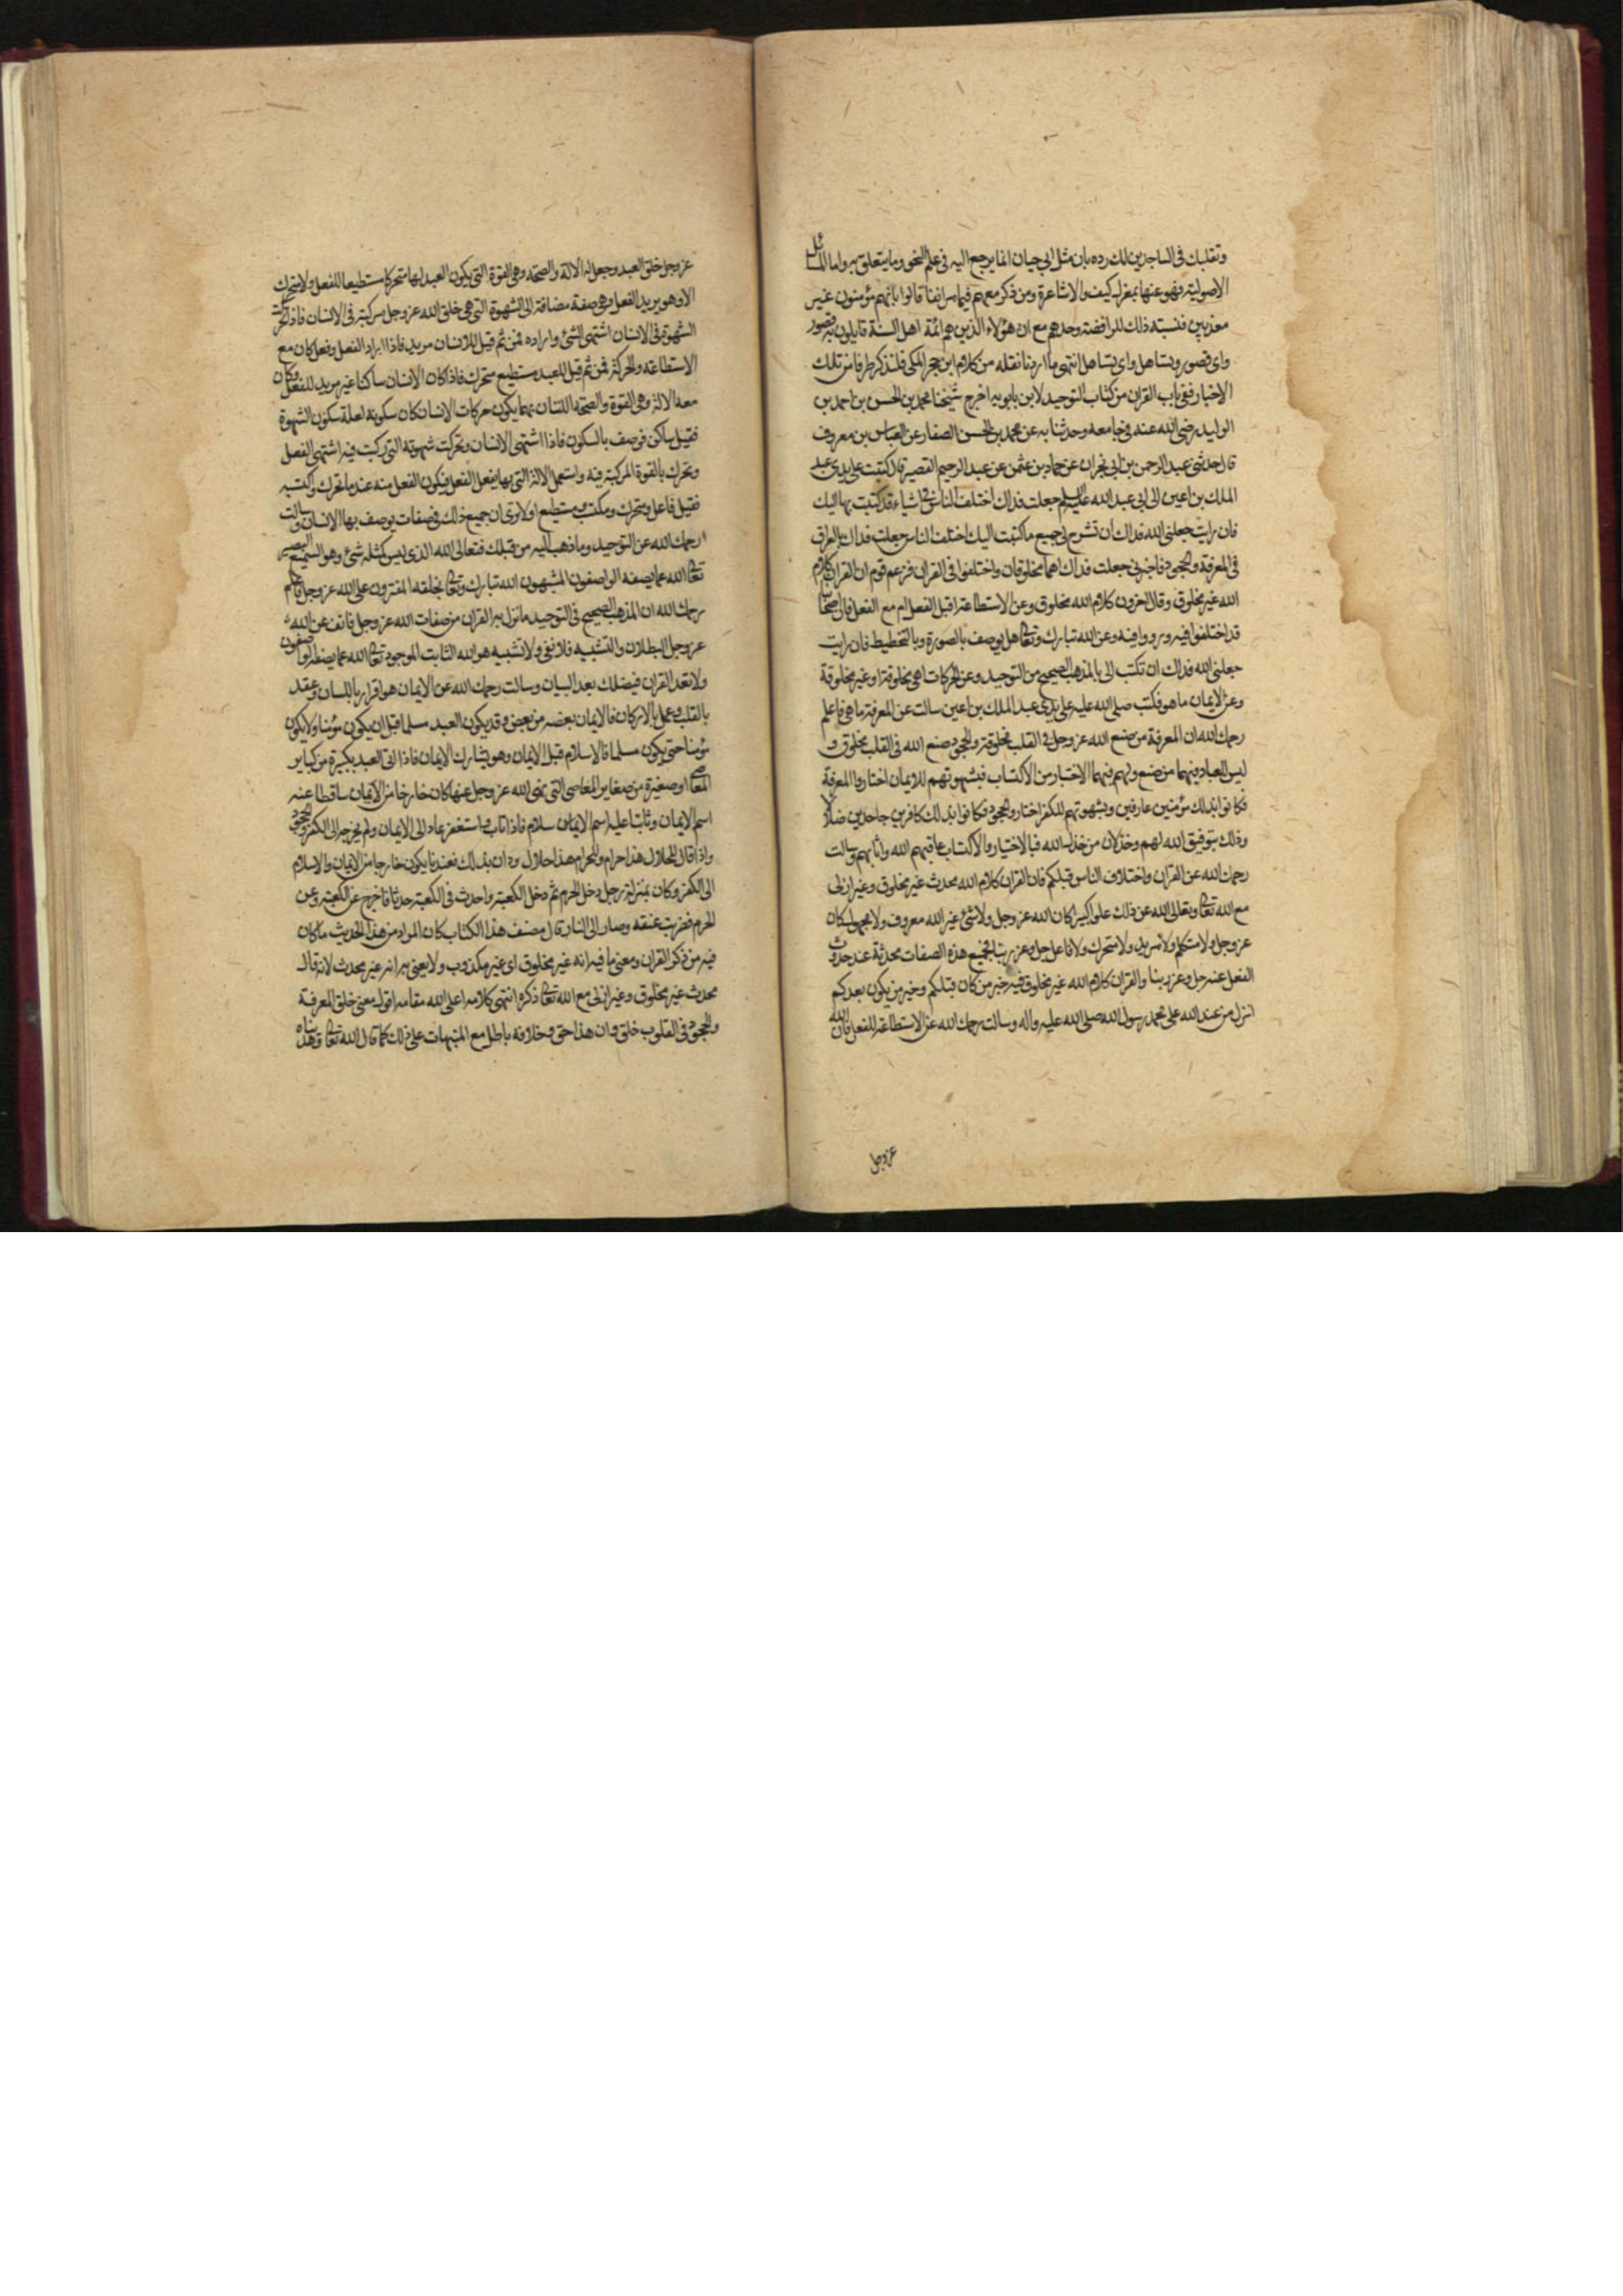 وتقلبك في الساجدين لك رده بان مثل ابي حيان انما يرجع اليه في علم النحو وما يتعلق به واما المسائل
الاصولية فهو عنها بمعزل كيف والاشاعرة ومن ذكر معهم فيما مر انفا قالوا بانهم مؤمنون غير
معذبين فنسبته ذلك للرافضة وحدهم مع ان هؤلاء الذين هم ائمة اهل السنة قايلون به قصور
واى قصور وتساهل واى تساهل انتهى ما اردنا نقله من كلام ابن حجر المكى فلنذكر طرفا من تلك
الاخبار ففى باب القران من كتاب التوحيد لابن بابويه اخرج شيخنا محمد بن الحسن بن احمد بن
الوليد رضى الله عنه فى جامعه وحدثنا به عن محمد بن الحسن الصفار عن العباس بن معروف
قال حدثنى عبد الرحمن بن ابى نجران عن حماد بن عثمن عن عبد الرحيم القصير قال كتبت على يدى عبد
الملك بن اعين الى ابى عبد الله عليه السلم جعلت فداك اختلف الناس فى اشياء قد كتبت بها اليك
فان رايت جعلنى الله فداك ان تشرح لى جميع ما كتبت اليك اختلف الناس جعلت فداك بالعراق
فى المعرفة والجحود فاخبرنى جعلت فداك اهما مخلوقان واختلفوا فى القران فزعم قوم ان القران كلام
الله غير مخلوق وقال اخرون كلام الله مخلوق وعن الاستطاعة اقبل الفعل ام مع الفعل فان اصحابنا
قد اختلفوا فيه ورووا فيه وعن الله تبارك وتعالى هل يوصف بالصورة وبالتخطيط فان رايت
جعلنى الله فداك ان تكتب الى بالمذهب الصحيح من التوحيد وعن الحركات اهى مخلوقة او غير مخلوقة
وعن الايمان ما هو فكتب صلى الله عليه على يدى عبد الملك بن اعين سالت عن المعرفة ما هى فاعلم
رحمك الله ان المعرفة من صنع الله عز وجل فى القلب مخلوقة والجحود صنع الله فى القلب مخلوق و
ليس للعباد فيهما من صنع ولهم فيهما الاختيار من الاكتساب فبشهوتهم للايمان اختاروا المعرفة
فكانوا بذلك مؤمنين عارفين وبشهوتهم للكفر اختاروا الجحود فكانوا بذلك كافرين جاحدين ضلالا
وذلك بتوفيق الله لهم وخذلان من خذله الله فبالاختيار والاكتساب عاقبهم الله واثابهم وسالت
رحمك الله عن القران واختلاف الناس قبلكم فان القران كلام الله محدث غير مخلوق وغير ازلى
مع الله تعالى وتعالى الله عن ذلك علوا كبيرا كان الله عز وجل ولا شئ غير الله معروف ولا مجهول كان
عز وجل ولا متكلم ولا مريد ولا متحرك ولا فاعل جل وعز ربنا فجميع هذه الصفات محدثة عند حدوث
الفعل عنه جل وعز ربنا والقران كلام الله غير مخلوق فيه خبر من كان قبلكم وخبر من يكون بعدكم
انزل من عند الله على محمد رسول الله صلى الله عليه واله وسالت رحمك الله عن الاستطاعة للفعل فان الله
عز وجل
عز وجل خلق العبد وجعل له الالة والصحة وهى القوة التى يكون العبد بها متحركا مستطيعا للفعل ولا متحرك
الا وهو يريد الفعل وهى صفة مضافة الى الشهوة التى هى خلق الله عز وجل مركبة فى الانسان فاذا تحركت
الشهوة فى الانسان اشتهى الشئ واراده فمن ثم قيل للانسان مريد فاذا اراد الفعل وفعل كان مع
الاستطاعة والحركة فمن ثم قيل للعبد مستطيع متحرك فاذا كان الانسان ساكنا غير مريد للفعل وكان
معه الالة وهى القوة والصحة اللتان بهما يكون حركات الانسان كان سكونه لعلة سكون الشهوة
فقيل ساكن فوصف بالسكون فاذا اشتهى الانسان وتحركت شهوته التى ركبت فيه اشتهى الفعل
وتحرك بالقوة المركبة فيه واستعمل الالة التى بها يفعل الفعل فيكون الفعل منه عند ما تحرك واكتسبه
فقيل فاعل ومتحرك ومكتسب ومستطيع اولا ترى ان جميع ذلك فى صفات يوصف بها الانسان وسالت
رحمك الله عن التوحيد وما ذهب اليه من قبلك فتعالى الله الذى ليس كمثله شئ وهو السميع البصير
تعالى الله عما يصفه الواصفون المشبهون الله تبارك وتعالى بخلقه المفترون على الله عز وجل فاعلم
رحمك الله ان المذهب الصحيح فى التوحيد ما نزل به القران من صفات الله عز وجل فانف عن الله
عز وجل البطلان والتشبيه فلا نفى ولا تشبيه هو الله الثابت الموجود تعالى الله عما يصفه الواصفون
ولا تعد القران فيضلك بعد البيان وسالت رحمك الله عن الايمان هو اقرار باللسان وعقد
بالقلب وعمل بالاركان فالايمان بعضه من بعض وقد يكون العبد مسلما قبل ان يكون مؤمنا ولا يكون
مؤمنا حتى يكون مسلما فالاسلام قبل الايمان وهو يشارك الايمان فاذا اتى العبد بكبيرة من كباير
المعاصى او صغيرة من صغاير المعاصى التى نهى الله عز وجل عنها كان خارجا من الايمان ساقطا عنه
اسم الايمان وثابتا عليه اسم الاسلام فاذا تاب واستغفر عاد الى الايمان ولم يخرجه الى الكفر والجحود
واذا قال للحلال هذا حرام وللحرام هذا حلال ودان بذلك فعندنا يكون خارجا من الايمان والاسلام
الى الكفر وكان بمنزلة رجل دخل الحرم ثم دخل الكعبة واحدث فى الكعبة حدثا فاخرج عن الكعبة وعن
الحرم فضربت عنقه وصار الى النار قال مصنف هذا الكتاب كان المراد من هذا الحديث ما كان
فيه من ذكر القران ومعنى ما فيه انه غير مخلوق اى غير مكذوب ولا يعنى به انه غير محدث لانه قال
محدث غير مخلوق وغير ازلى مع الله تعالى ذكره انتهى كلامه اعلى الله مقامه اقول معنى خلق المعرفة
والجحود فى القلوب خلق وان هذا حق وخلافه باطل مع المنبهات على ذلك كما قال الله تعالى وهديناه